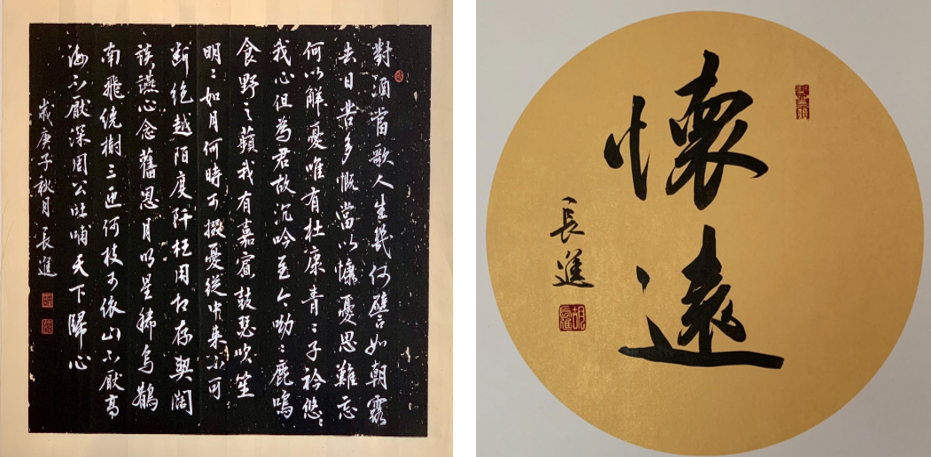 對酒當歌人生幾何譬如朝露
去日苦多慨當以慷憂思難忘
何以解憂唯有杜康青〻子衿悠〻
我心但為君故沉吟至今呦〻鹿鳴
食野之蘋我有嘉賓鼓瑟吹笙
明〻如月何時可掇憂從中來不可
断絕越陌度阡枉用相存契闊
談讌心念舊恩月明星稀烏鵲
南飛繞樹三匝何枝可依山不厭高
海不厭深周公吐哺天下歸心
歲庚子秋月長進
懷遠
長進